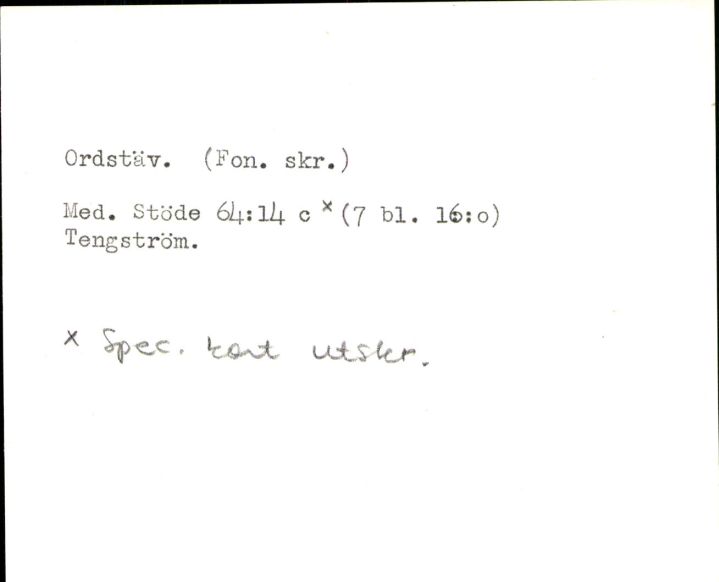 Ordstäv. (Fon. skr.)
Med. Stöde 64:14 c x (7 bl. 16:o)
Tengström.
x Spec. kort utskr.